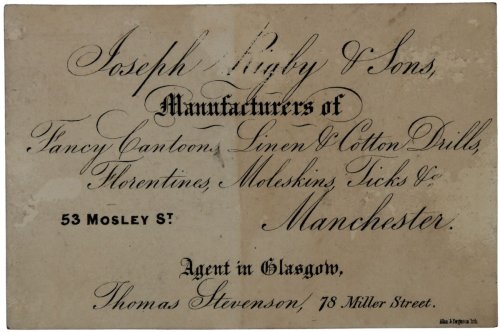 Joseph Rigby & Sons,
Manufacturers of
Fancy Cantoons, Linen & Cotton Drills,
Florentines, Moleskins, Ticks &c
53 MOSLEY ST.
Manchester.
Agent in Glasgow,
Thomas Stevenson, 78 Miller Street.
Allan & Ferguson lith.